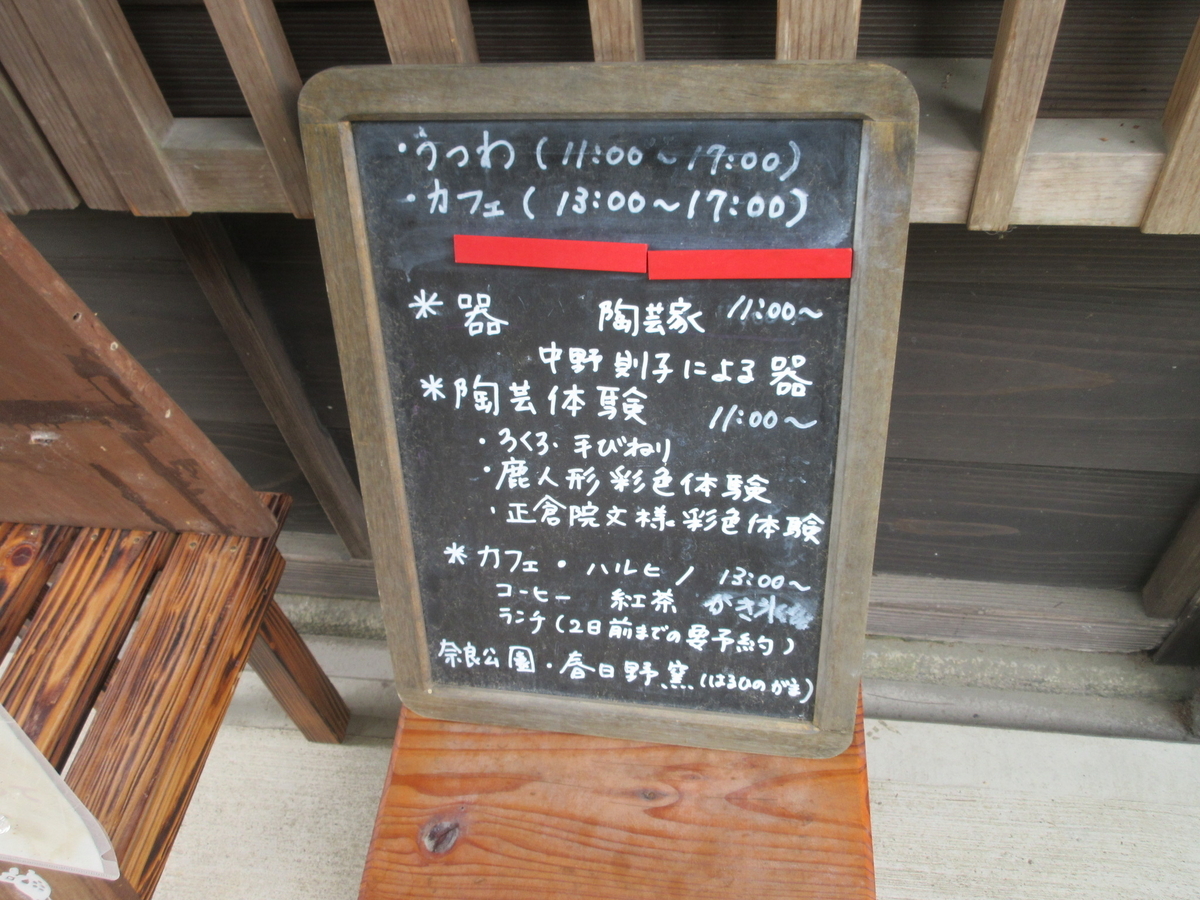 ・うつわ(11:00～17:00)
・カフェ(13:00～17:00)
*器 陶芸家 11:00～
中野則子による器
*陶芸体験 11:00～
・ろくろ・手びねり
・鹿人形彩色体験
・正倉院文様彩色体験
*カフェ・ハルヒノ 13:00～
コーヒー 紅茶 かき氷
ランチ(2日前までの要予約)
奈良公園・春日野窯(はるひのがま)